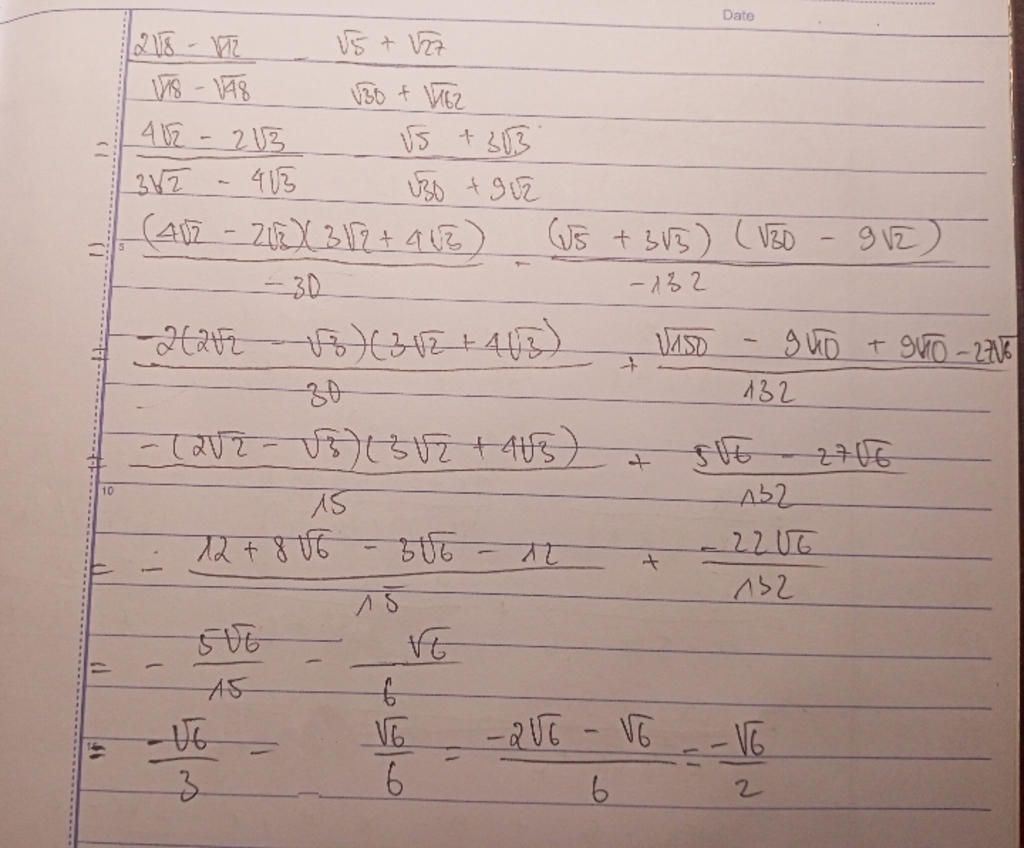 Date
(2√8 - √12)/(√18 - √48) - (√5 + √27)/(√30 + √162)
= (4√2 - 2√3)/(3√2 - 4√3) (√5 + 3√3)/(√30 + 9√2)
= 5 ((4√2 - 2√3)(3√2 + 4√3))/(-30) - ((√5 + 3√3)(√30 - 9√2))/(-132)
= (-2(2√2 - √3)(3√2 + 4√3))/30 + (√150 - 9√10 + 9√10 - 27√6)/132
= (-(2√2 - √3)(3√2 + 4√3))/15 + (5√6 - 27√6)/132
10
= - (12 + 8√6 - 3√6 - 12)/15 + (-22√6)/132
= - 5√6/15 - √6/6
= -√6/3 - √6/6 = (-2√6 - √6)/6 = -√6/2